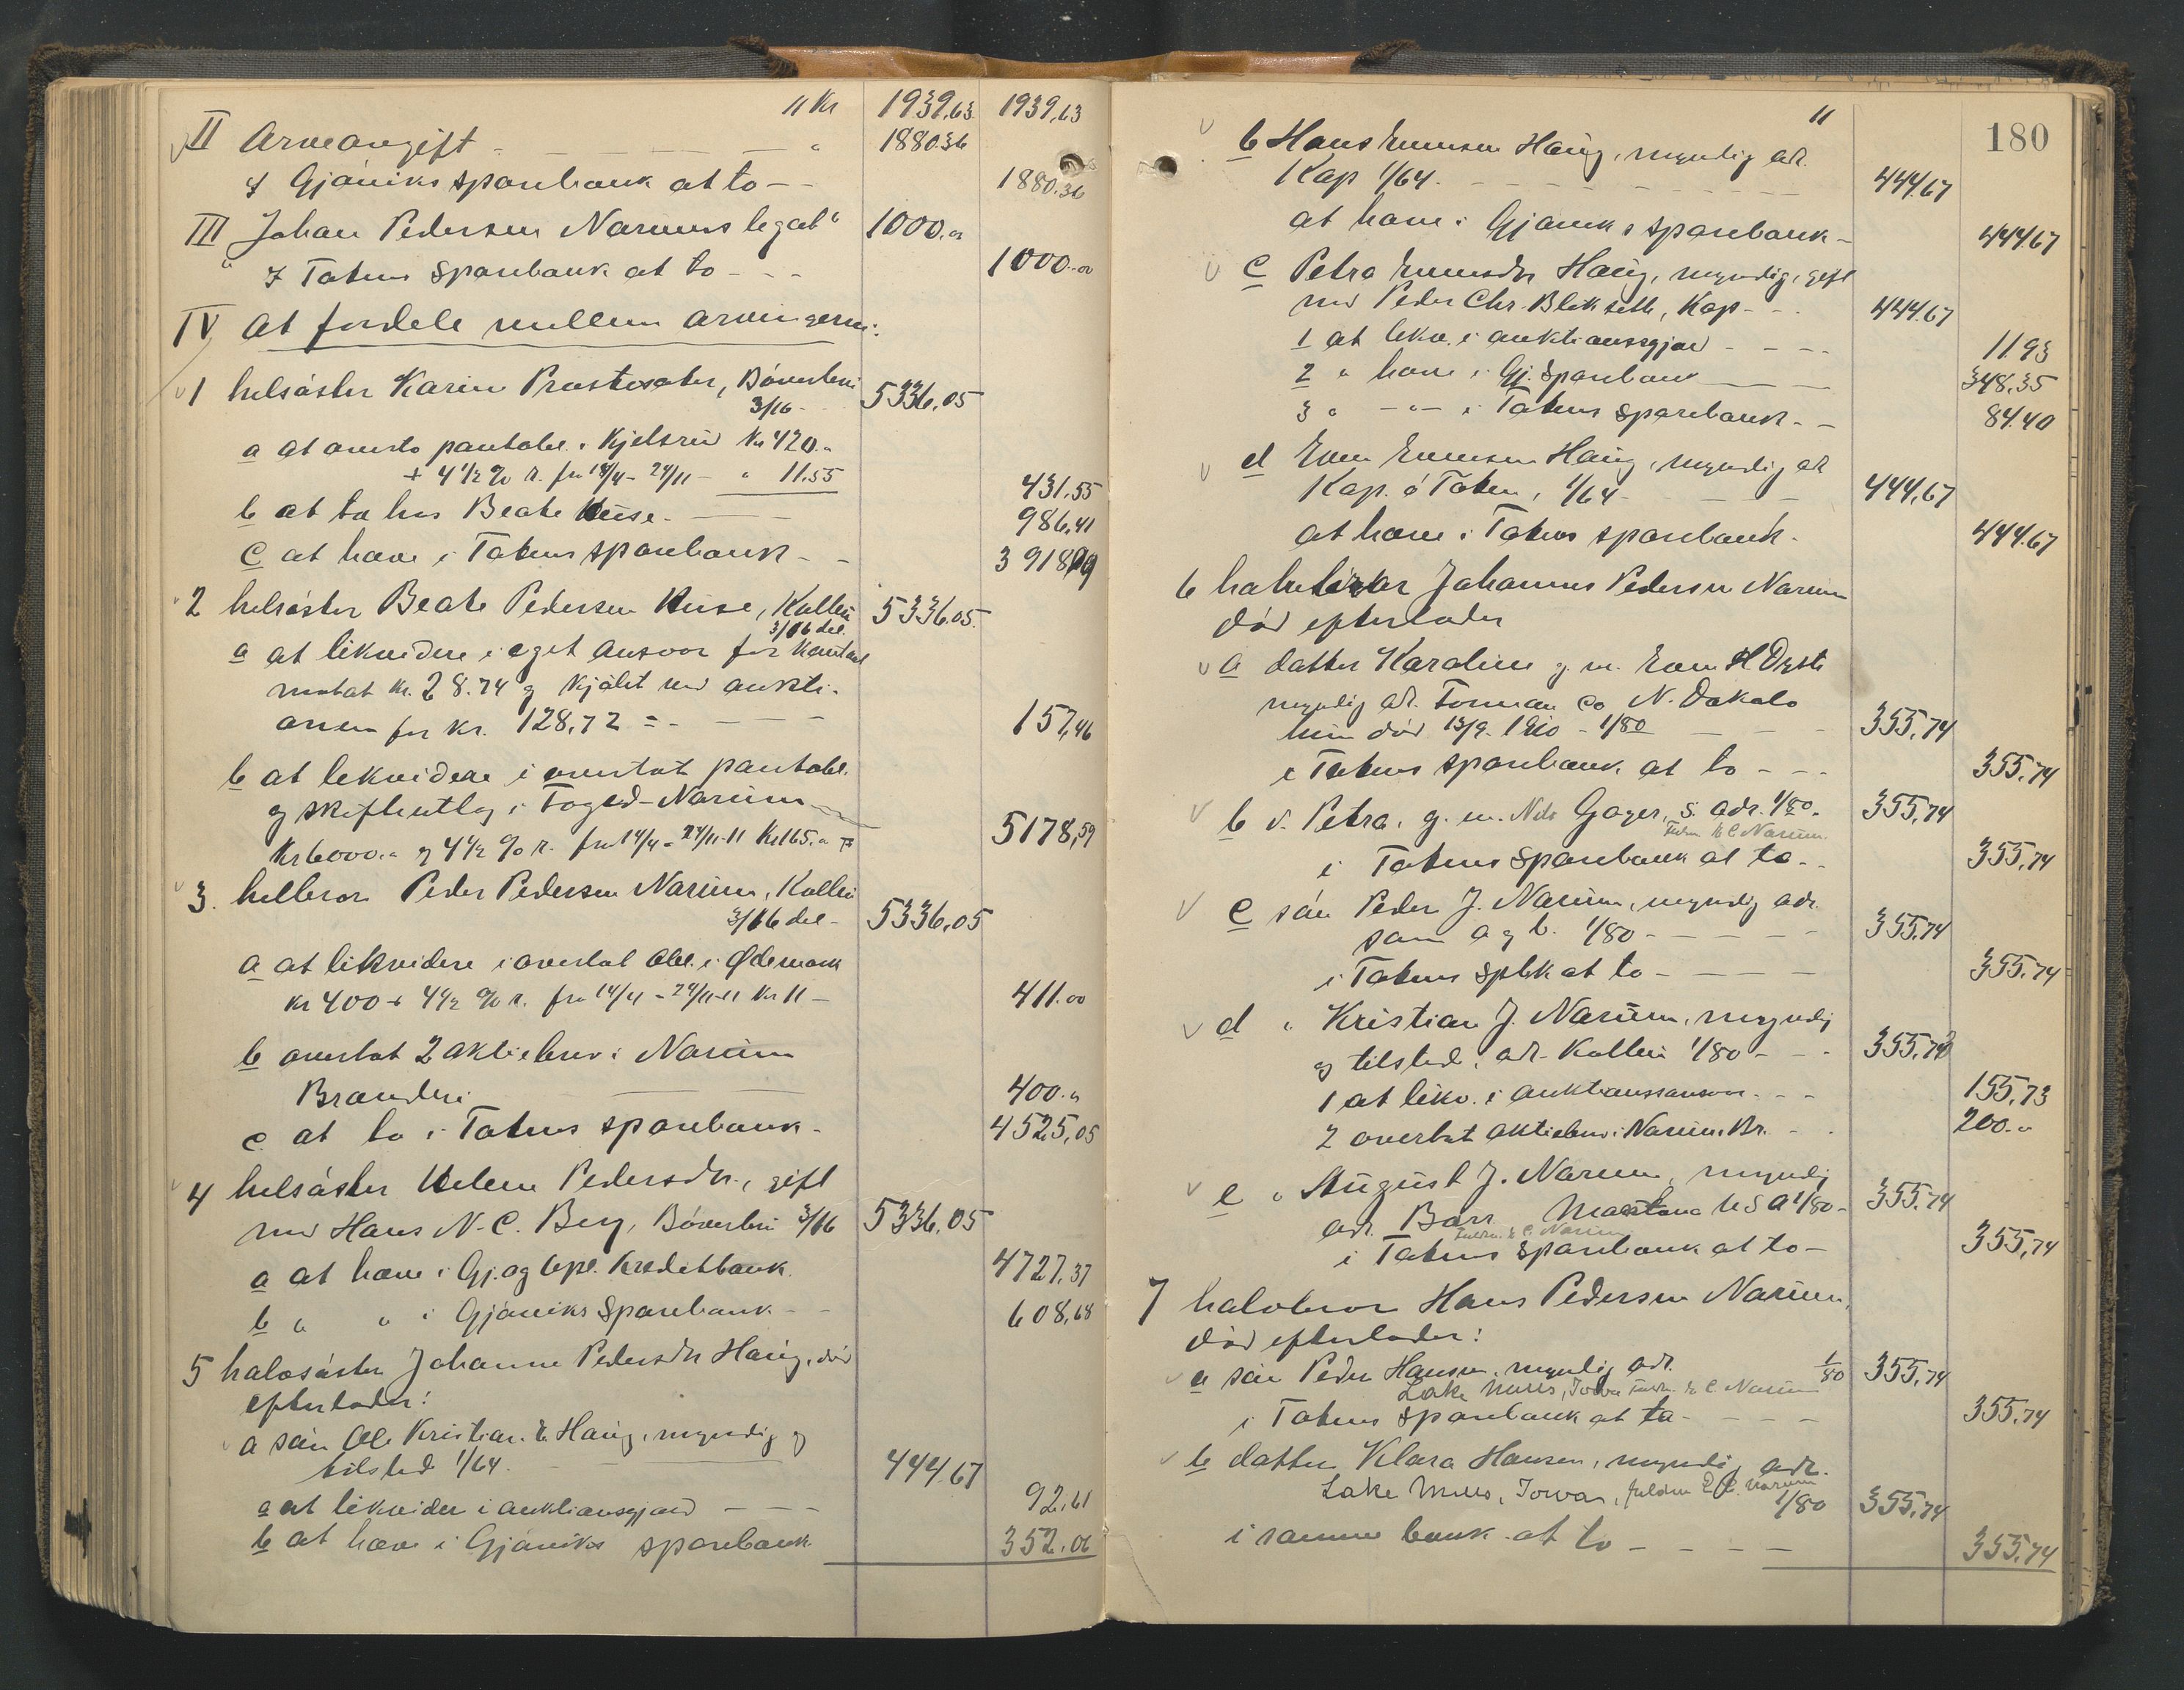 " Kr 1939,63 1939,63
II Arveavgift - - - " 1880.36
i Gjøviks sparebank at ta - - 1880.36
III Johan Pedersen Narums legat " 1000.00
" i Totens sparebank at ta - - - 1000.00
IV At fordele mellem arvingerne:
1 helsøster Karin Prestesæter, Bøverbru
3/16 - - 5336,05
a at overta pantobl. i Kjelsrud Kr 420.-
+ 4 1/2 % r. fra 14/4 - 24/11 - " 11.55 431,55
b at ta hos Beate Huse. - 986,41
c at hæve i Totens sparebank - - 3918,09
2 helsøster Beate Pedersen Huse, Kolbu 5336.05.
3/16 del.
a at likvidere i eget ansvar for kontant
motat kr. 28.74 og kjøbt ved aukti-
onen for kr. 128,72 = - - - 157,46
b at likvidere i overtat pantobl.
og skifteutlæg i Foged-Narum
Kr 6000.- og 4 1/2 % r. fra 14/4 - 24/11-11 Kr 165.- 5178,59
3. helbror Peder Pedersen Narum, Kolbu
3/16 del - 5336,05
a at likvidere i overtat obl. i Ødemark
kr 400 + 4 1/2 % r. fra 14/4 - 24/11-11 kr 11 - 411.00
b overtat 2 aktiebrev i Narum
Brænderi 400.-
c. at ta i Totens sparebank - 4525,05
4 helsøster Helene Pedersdr., gift
med Hans N. C. Berg, Bøverbru 3/16 5336,05
a at hæve i Gj. og Opl. Kreditbank. 4727,37
b " " i Gjøviks Sparebank - - 608,68
5 halvsøster Johanne Pedersdr Haug, død
efterlader:
a søn Ole Kristian E. Haug, myndig og
tilsted 1/64. 444.67
a at likvidere i auktionsgjæld - - - 92,61
b at hæve i Gjøviks sparebank. 352.06
" 180
b Hans Evensen Haug, myndig adr.
Kap 1/64. - - - 444.67
at hæve i Gjøviks sparebank - 444.67
c Petra Evensdr Haug, myndig, gift
med Peder Chr. Blekseth, Kap - - . 444.67
1 at likv. i auktionsgjæld - - - - 11.93
2 " hæve i Gj. Sparebank - - 348.35
3 " - " - i Totens sparebank. - - 84.40
d Even Evensen Haug, myndig adr
Kap. Ø Toten, 1/64 - - - 444,67
at hæve i Totens sparebank. 444.67
6 halvbror Johannes Pedersen Narum
død efterlader
a datter Karoline g. m. Even H Dyste
myndig adr. Forman Co N. Dakota
hun død 13/9. 1910 - 1/80 - - - 355,74
i Totens sparebank at ta - - - 355,74
b d. Petra, g. m. Nils Gager, s. adr. 1/80. 355,74
Fuldm. E C Narum.
i Totens Sparebank at ta. - 355,74
c søn Peder J. Narum, myndig adr.
som a og b. 1/80 - - - - - 355.74
i Totens Spbk at ta - - - - 355.74
d " Kristian J. Narum, myndig
og tilsted, adr. Kolbu 1/80 - - - 355,73
1 at likv. i auktionsansvar - - - 155,73
2 overtat aktiebrev i Narum Br. - . 200.-
e " August J. Narum, myndig
adr. Barr Montana U S A 1/80 - 355.74
Fuldm. E C. Narum
i Totens Sparebank at ta - 355,74
7 halvbror Hans Pedersen Narum,
død efterlader:
a søn Peder Hansen, myndig adr. 1/80 355,74
Lake Mills, Iowa Fuldm. E C. Narum
i Totens sparebank at ta - - - - 355.74
b datter Klara Hansen, myndig adr.
Lake Mills, Iowa, fuldm E C. Narum
1/80 355,74
i samme bank at ta - - - - 355.74